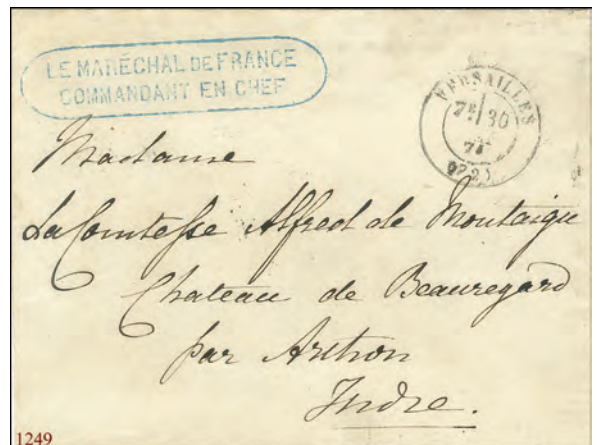 LE MARÉCHAL DE FRANCE
COMMANDANT EN CHEF
VERSAILLES
7E 30
71
Madame
La Comtesse Alfred de Montaigu
Chateau de Beauregard
par Arthon
Indre.
1249